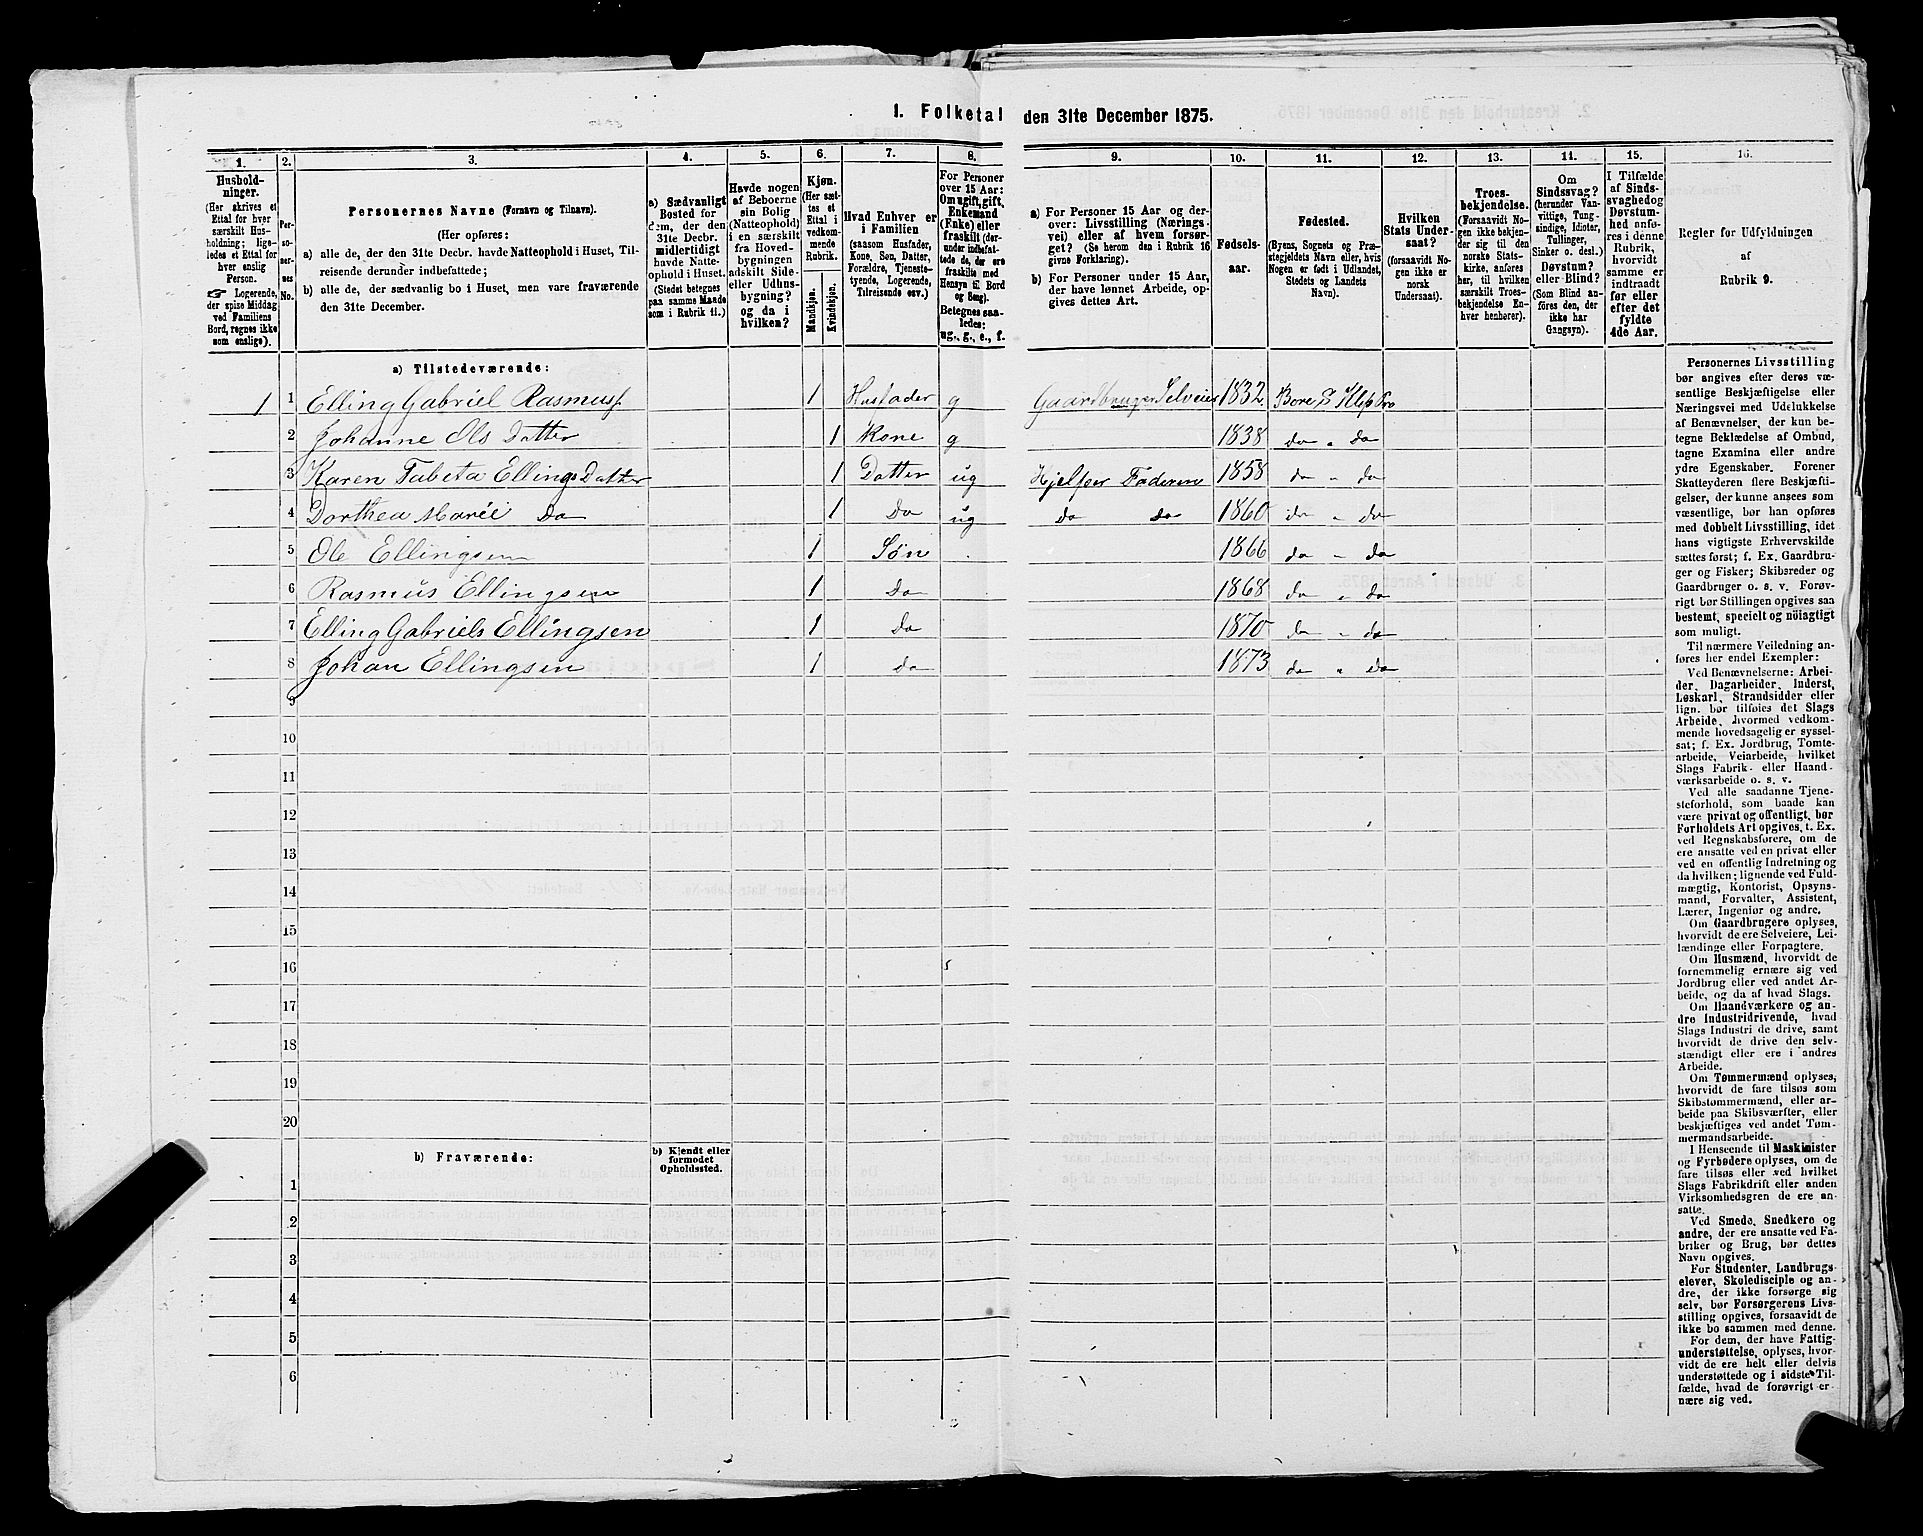 1. Folketal den 31te December 1875.
1.
2.
3.
4.
5.
6.
7.
8.
9.
10.
11.
12.
13.
14.
15.
16.
Hushold-
ninger.
(Her skrives et
Ettal for hver
særskilt Hus-
holdning; lige-
ledes et Ettal for
hver enslig
Person.
☞ Logerende,
der spise Middag
ved Familiens
Bord, regnes ikke
som enslige).
Per-
so-
ner-
nes
No.
Personernes Navne (Fornavn og Tilnavn).
(Her opføres:
a) alle de, der den 31te Decbr. havde Natteophold i Huset, Til-
reisende derunder indbefattede;
b) alle de, der sædvanlig bo i Huset, men vare fraværende
den 31te December.
a) Sædvanligt
Bosted for
dem, der den
31te Decbr.
midlertidigt
havde Natte-
ophold i Huset.
(Stedet betegnes
paa samme Maade
som i Rubrik 11.)
Havde nogen
af Beboerne
sin Bolig
(Natteophold)
i en særskilt
fra Hoved-
bygningen
adskilt Side-
eller Udhus-
bygning?
og da i
hvilken?
Kjøn.
(Her sæt-
tes et
Ettal i
vedkom-
mende
Rubrik.
Mandkjøn.
Kvindekjøn.
Hvad Enhver er
i Familien
(saasom Husfader,
Kone, Søn, Datter,
Forældre, Tjeneste-
tyende, Logerende,
Tilreisende osv.)
For Personer
over 15 Aar:
Om ugift, gift,
Enkemand
(Enke) eller
fraskilt (der-
under indbefat-
tede de, der ere
fraskilte med
Hensyn til Bord
og Seng).
Betegnes saa-
ledes:
ug., g., e., f.
a) For Personer 15 Aar og der-
over: Livsstilling (Nærings-
vei) eller af hvem forsør-
get? (Se herom den i Rubrik 16
givne Forklaring).
b) For Personer under 15 Aar,
der have lønnet Arbeide, op-
gives dettes Art.
Fødsels-
aar.
Fødested.
(Byens, Sognets og Præ-
stegjeldets Navn eller, hvis
Nogen er født i Udlandet,
Stedets og Landets
Navn).
Hvilken
Stats Under-
saat?
(forsaavidt No-
gen ikke er
norsk
Undersaat).
Troes-
bekjendelse.
(Forsaavidt No-
gen ikke bekjen-
der sig til den
norske Stats-
kirke, anføres
her, til hvilken
særskilt Troes-
bekjendelse En-
hver henhører).
Om
Sindssvag?
(herunder Van-
vittige, Tung-
sindige, Idioter,
Tullinger,
Sinker o. desl.)
Døvstum?
eller Blind?
(Som Blind an-
føres den, der
ikke har
Gangsyn).
I Tilfælde
af Sinds-
svaghedog
Døvstum-
hed anfø-
res i denne
Rubrik,
hvorvidt
samme er
indtraadt
før eller
efter det
fyldte
4de Aar.
Regler for Udfyldningen
af
Rubrik 9.
a) Tilstedeværende:
1 1 Elling Gabriel Rasmuss. 1 Husfader g Gaardbruger Selveier 1832 Bore S Klep Pro
2 Johanne Ols Datter 1 Kone g 1838 do " do
3 Karen Tabeta Ellings Datter 1 Datter ug Hjelper Faderen 1858 do " do
4 Dorthea Marie do 1 do ug do do 1860 do " do
5 Ole Ellingsen 1 Søn 1866 do " do
6 Rasmus Ellingsen 1 do 1868 do " do
7 Elling Gabriels Ellingsen 1 do 1870 do " do
8 Johan Ellingsen 1 do 1873 do " do
9
10
11
12
13
14
15
16
17
18
19
20
b) Fraværende:
b) Kjendt eller
formodet
Opholdssted.
1
2
3
4
5
6
Personernes Livsstilling
bør angives efter deres væ-
sentlige Beskjæftigelse eller
Næringsvei med Udelukkelse
af Benævnelser, der kun be-
tegne Beklædelse af Ombud,
tagne Examina eller andre
ydre Egenskaber. Forener
Skatteyderen flere Beskjæfti-
gelser, der kunne ansees som
væsentlige, bør han opføres
med dobbelt Livsstilling, idet
hans vigtigste Erhvervskilde
sættes først; f. Ex. Gaardbru-
ger og Fisker; Skibsreder og
Gaardbruger o. s. v. Forøv-
rigt bør Stillingen opgives saa
bestemt, specielt og nöiagtigt
som muligt.
Til nærmere Veiledning an-
føres her endel Exempler:
Ved Benævnelserne: Arbei-
der, Dagarbeider, Inderst,
Løskarl, Strandsidder eller
lign. bør tilføies det Slags
Arbeide, hvormed vedkom-
mende hovedsagelig er syssel-
sat; f. Ex. Jordbrug, Tomte-
arbeide, Veiarbeide, hvilket
Slags Fabrik- eller Haand-
værksarbeide o. s. v.
Ved alle saadanne Tjene-
steforhold, som baade kan
være privat og offentligt, bør
Forholdets Art opgives, t. Ex.
ved Regnskabsførere, om de
ere ansatte ved en privat eller
ved en offentlig Indretning og
da hvilken; lignende ved Fuld-
mægtig, Kontorist, Opsyns-
mand, Forvalter, Assistent,
Lærer, Ingeniør og andre.
Om Gaardbrugere oplyses,
hvorvidt de ere Selveiere, Lei-
lændinge eller Forpagtere.
Om Husmænd, hvorvidt de
fornemmelig ernære sig ved
Jordbrug eller ved andet Ar-
beide, og da af hvad Slags.
Om Haandværkere og an-
dre Industridrivende, hvad
Slags Industri de drive, samt
hvorvidt de drive den selv-
stændigt eller ere i andres
Arbeide.
Om Tømmermænd oplyses,
hvorvidt de fare tilsøs som
Skibstømmermænd, eller ar-
beide paa Skibsværfter, eller
beskjæftiges ved andet Tøm-
mermandsarbeide.
I Henseende til Maskinister
og Fyrbødere oplyses, om de
fare tilsøs eller ved hvilket
Slags Fabrikdrift eller anden
Virksomhedsgren de ere an-
satte.
Ved Smede, Snedkere og
andre, der ere ansatte ved Fa-
briker og Brug, bør dettes
Navn opgives.
For Studenter, Landbrugs-
elever, Skoledisciple og an-
dre, der ikke forsørge sig
selv, bør Forsørgerens Livs-
stilling opgives, forsaavidt de
ikke bo sammen med denne.
For dem, der have Fattig-
understøttelse, oplyses, hvor-
vidt de ere helt eller delvis
understøttede og i sidste Til-
fælde, hvad de forøvrigt er-
nære sig ved.